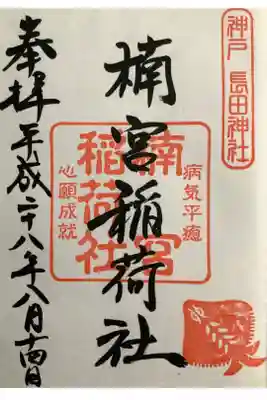 神戸 長田神社
病気平癒
楠宮稲荷社
楠宮
稲荷社
心願成就
奉拝 平成二十八年八月十四日